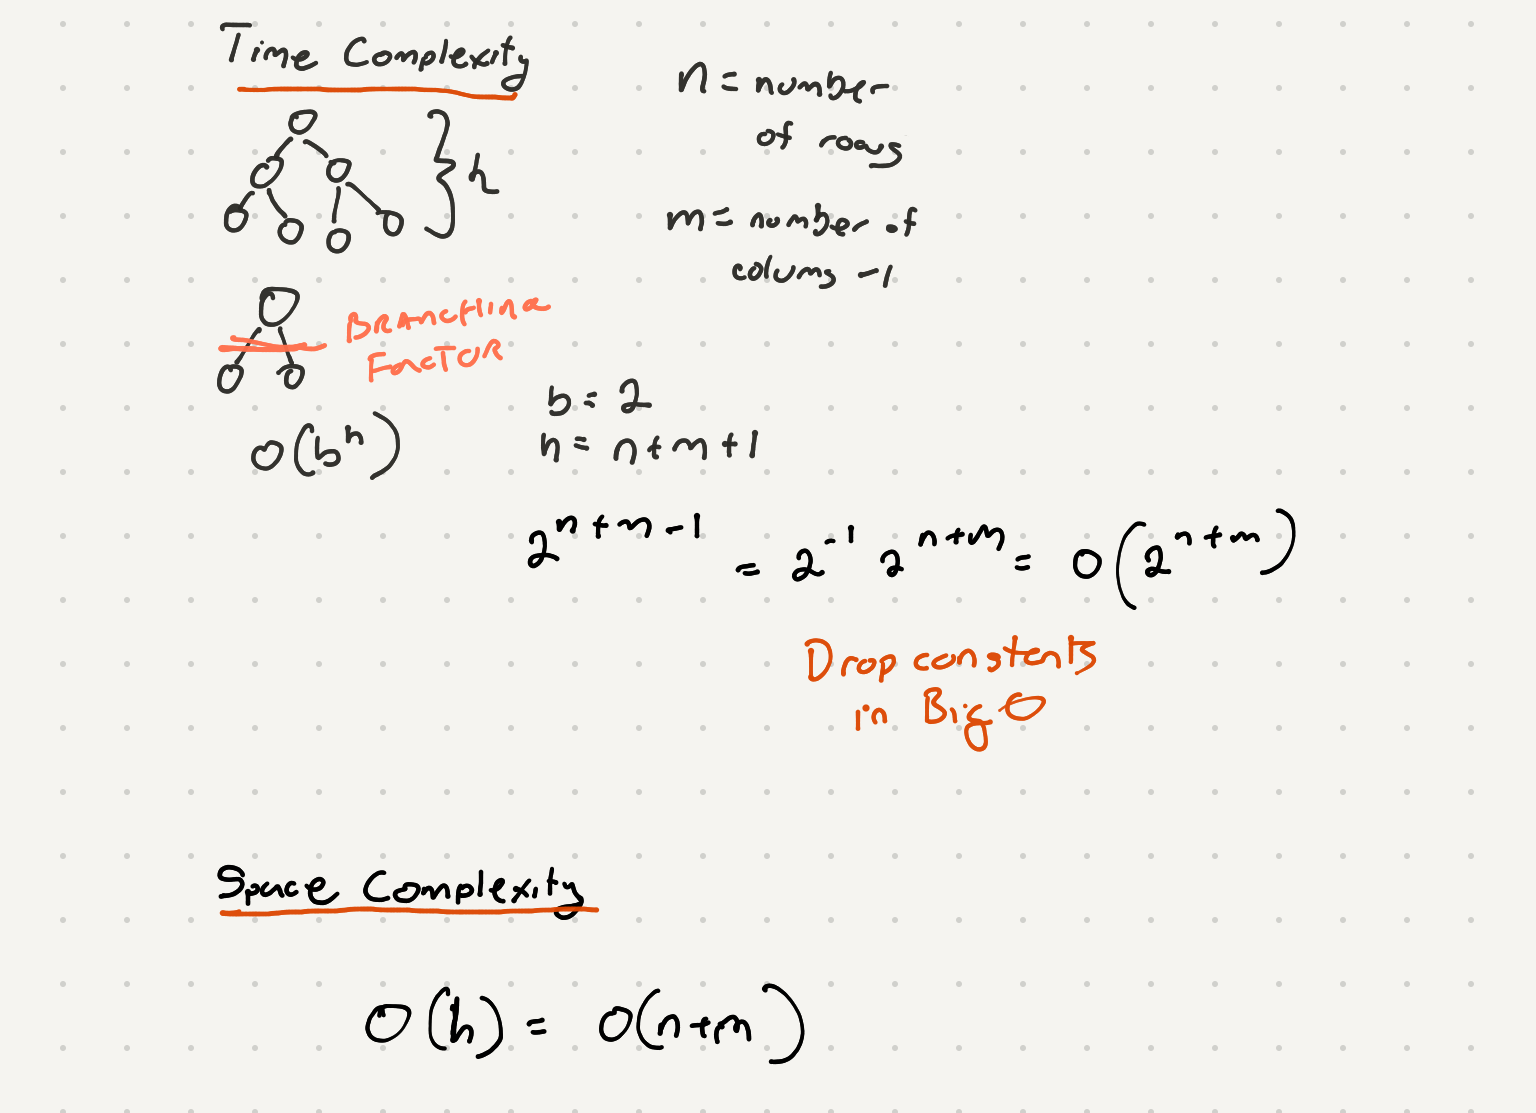 Time Complexity
n = number
of rows
h
m = number of
colums -1
BRANCHING
FACTOR
b = 2
O(b^h)
h = n+m+1
2^n+m-1 = 2^-1 2^n+m = O(2^n+m)
Drop constants
in Big O
Space Complexity
O(h) = O(n+m)